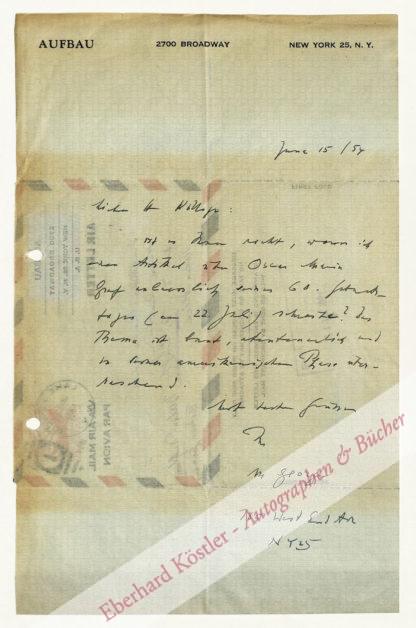 AUFBAU 2700 BROADWAY NEW YORK 25, N. Y.
June 15 / 54
Lieber Hr
ist es Ihnen recht, wenn ich
einen Artikel über Oscar Maria
Graf anlässlich seines 60. Geburts-
tages (am 22. Juli) schreibe? Das
Thema ist bunt, abenteuerlich und
in seiner amerikanischen Phase über-
raschend.
Mit besten Grüssen
Ihr
M. Georg
West End Ave
NY 25
AIR LETTER
VIA AIR MAIL
PAR AVION
Eberhard Köstler - Autographen & Bücher